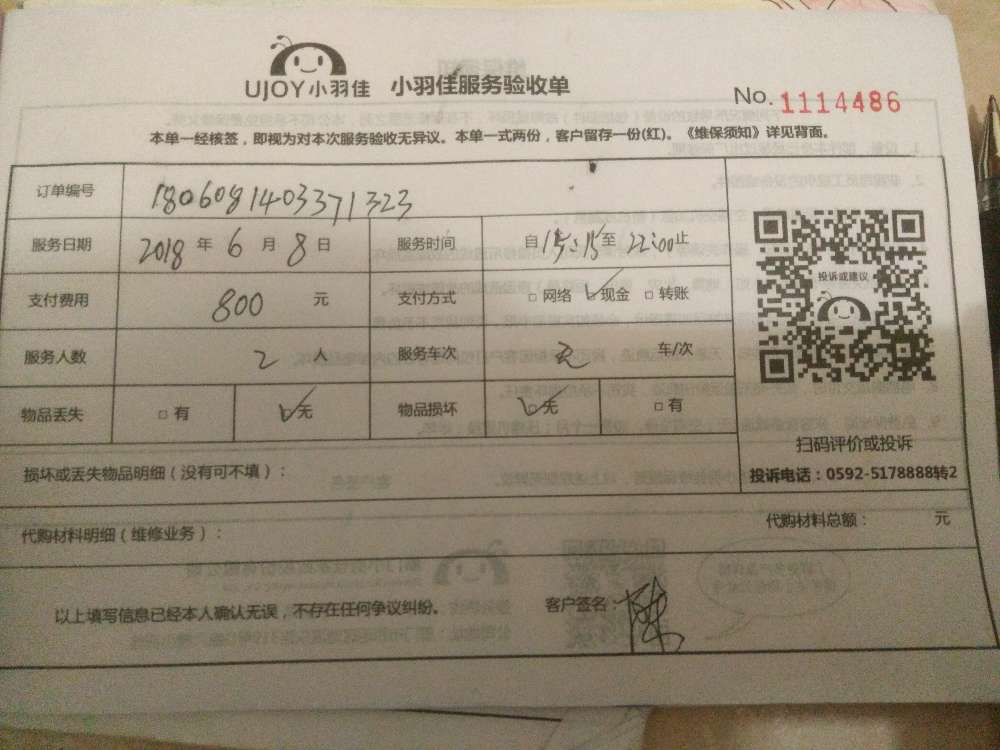 UJOY小羽佳 小羽佳服务验收单
No. 1114486
本单一经核签，即视为对本次服务验收无异议。本单一式两份，客户留存一份(红)。《维保须知》详见背面。
订单编号 1806081403371323
服务日期 2018 年 6 月 8 日 服务时间 自 15:15 至 22:00 止
投诉或建议
支付费用 800 元 支付方式 □ 网络 ☑ 现金 □ 转账
服务人数 2 人 服务车次 车/次
物品丢失 □ 有 ☑ 无 物品损坏 ☑ 无 □ 有
扫码评价或投诉
投诉电话：0592-5178888转2
损坏或丢失物品明细（没有可不填）：
代购材料明细（维修业务）： 代购材料总额： 元
以上填写信息已经本人确认无误，不存在任何争议纠纷。 客户签名：